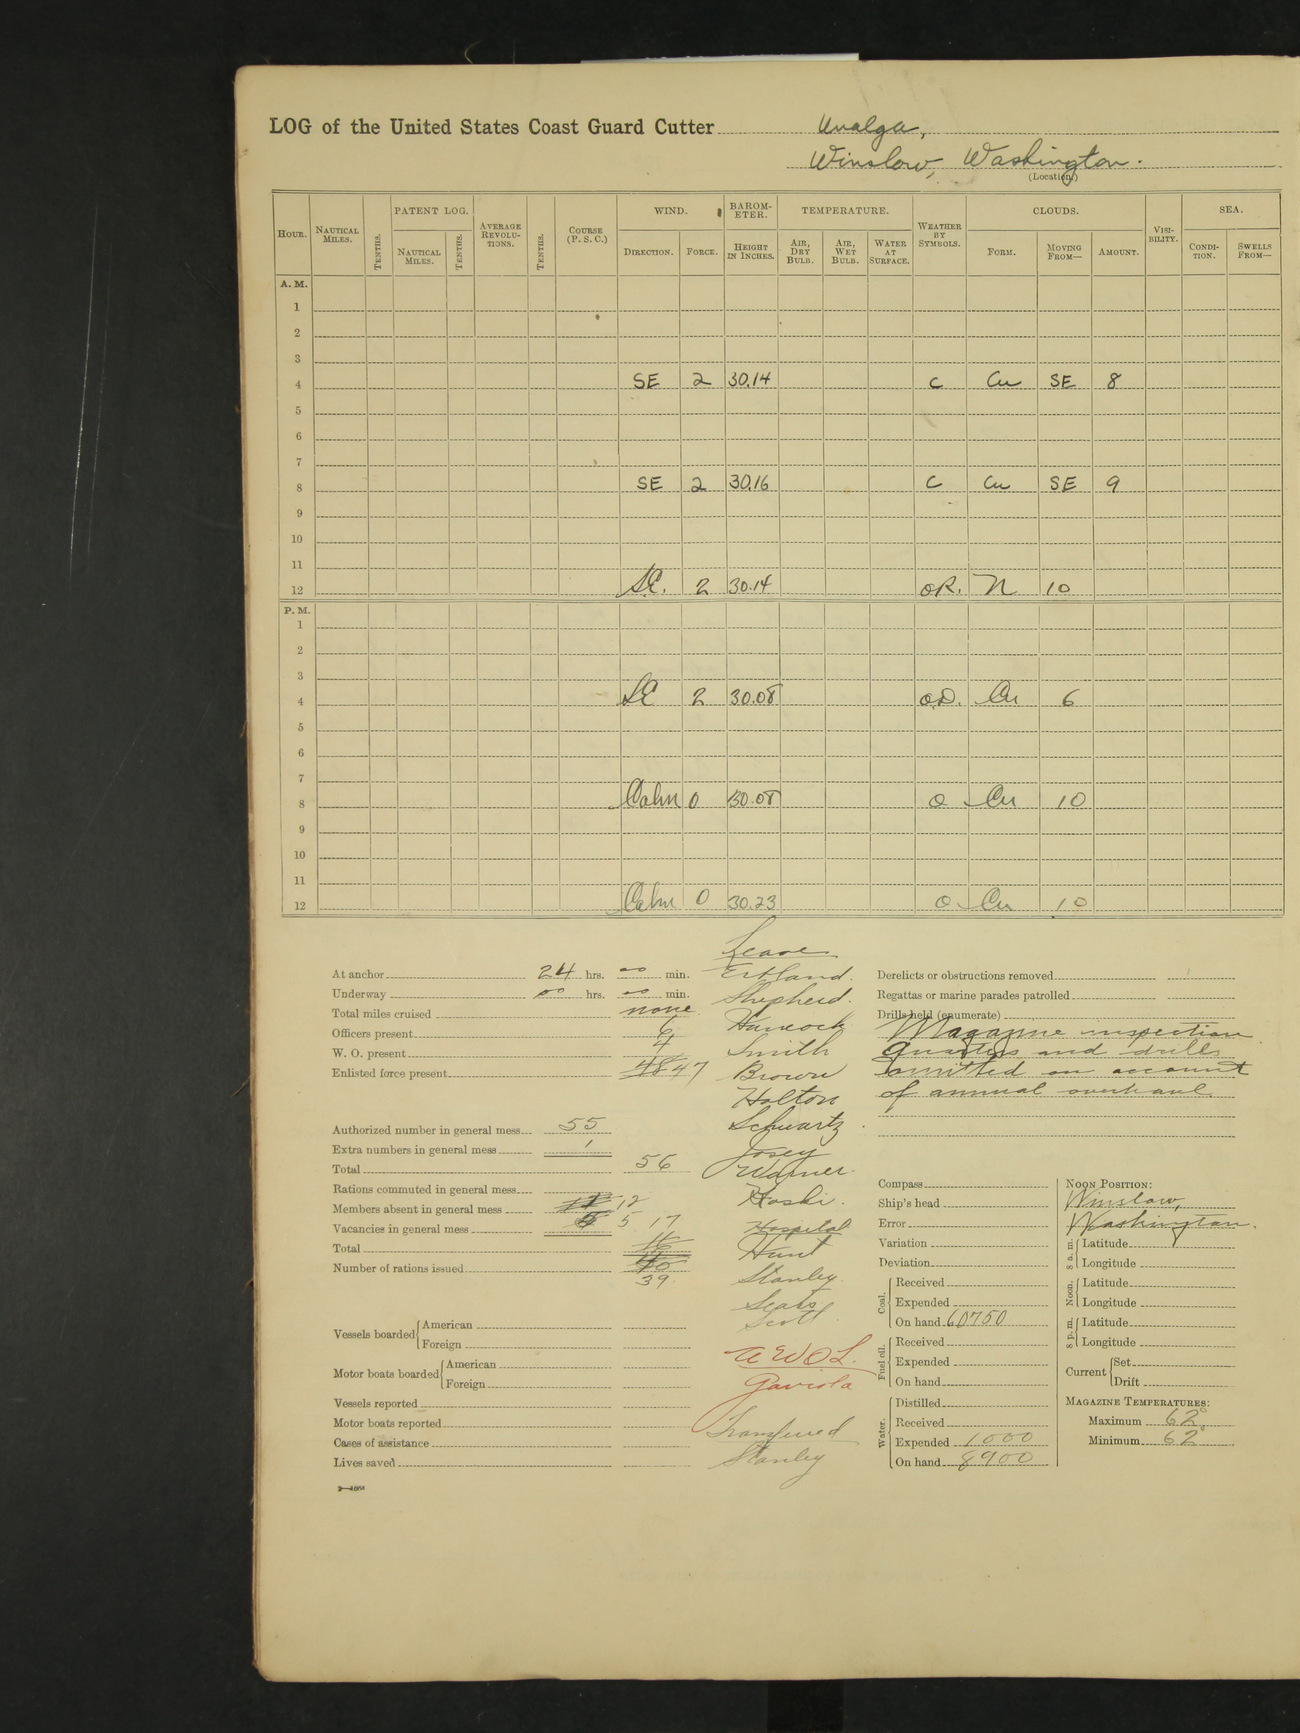 LOG of the United States Coast Guard Cutter Unalga,
Winslow, Washington.
(Location)
HOUR. NAUTICAL MILES. TENTHS. PATENT LOG. NAUTICAL MILES. TENTHS. AVERAGE REVOLUTIONS. TENTHS. COURSE (P. S. C.) WIND. DIRECTION. FORCE. BAROMETER. HEIGHT IN INCHES. TEMPERATURE. AIR, DRY BULB. AIR, WET BULB. WATER AT SURFACE. WEATHER BY SYMBOLS. CLOUDS. FORM. MOVING FROM— AMOUNT. VISIBILITY. SEA. CONDITION. SWELLS FROM—
A. M.
1
2
3
4 SE 2 30.14 c Cu SE 8
5
6
7
8 SE 2 30.16 c Cu SE 9
9
10
11
12 SE. 2 30.14 OR. N 10
P. M.
1
2
3
4 SE 2 30.08 O.D. Cu 6
5
6
7
8 Calm 0 30.08 O Cu 10
9
10
11
12 Calm 0 30.23 O Cu 10
At anchor 24 hrs. 00 min.
Underway 00 hrs. 00 min.
Total miles cruised none
Officers present 6
W. O. present 4
Enlisted force present 48 47
Authorized number in general mess 55
Extra numbers in general mess 1
Total 56
Rations commuted in general mess
Members absent in general mess 11 12
Vacancies in general mess 5 17
Total 16
Number of rations issued 40
39
Vessels boarded American
Foreign
Motor boats boarded American
Foreign
Vessels reported
Motor boats reported
Cases of assistance
Lives saved
Leave
Ertland.
Shepherd.
Hancock
Smith
Brown
Holton
Schwartz
Josey
Warner.
Hoski.
Hospital
Hunt
Stanley.
Sears
Scott
AWOL.
Gaviola
Transferred
Stanley
Derelicts or obstructions removed
Regattas or marine parades patrolled
Drills held (enumerate)
Magazine inspection
quarters and drills
omitted on account
of annual overhaul.
Compass
Ship's head
Error
Variation
Deviation
Coal. Received
Expended
On hand 60750
Fuel oil. Received
Expended
On hand
Water. Distilled
Received
Expended 1000
On hand 8900
NOON POSITION:
Winslow,
Washington.
8 a. m. Latitude
Longitude
Noon. Latitude
Longitude
8 p. m. Latitude
Longitude
Current Set
Drift
MAGAZINE TEMPERATURES:
Maximum 62°
Minimum 62°